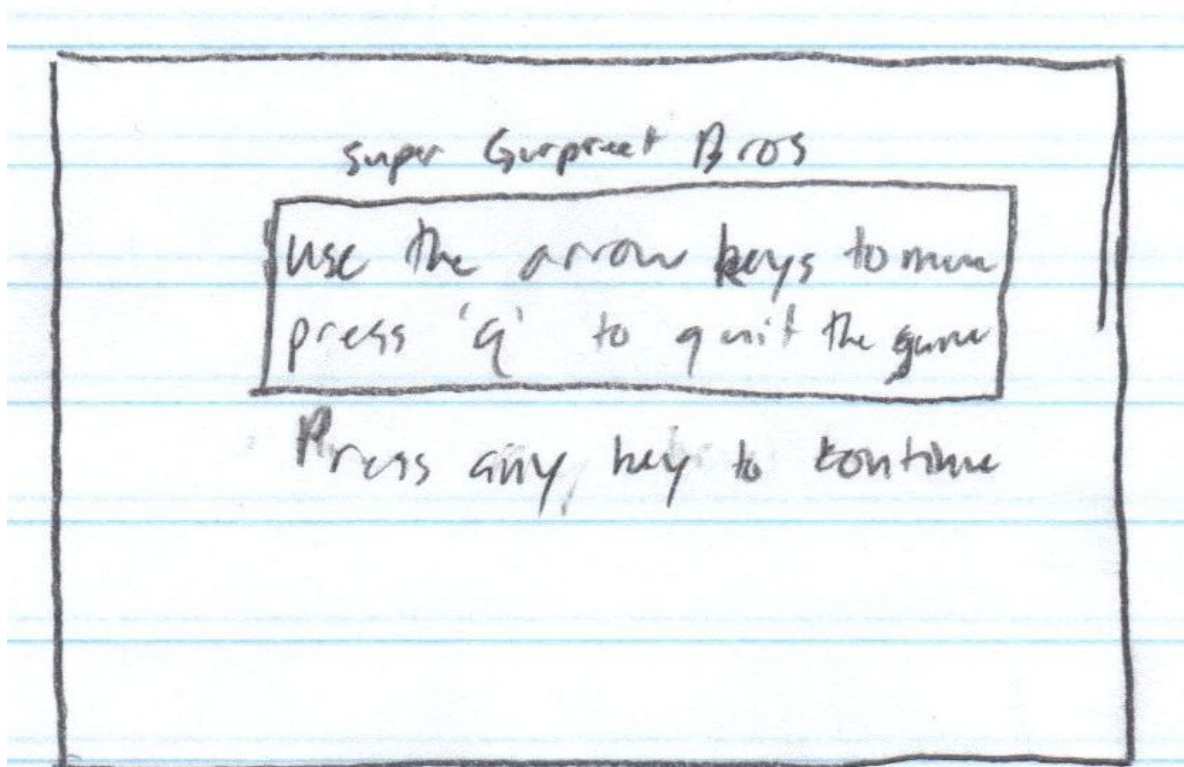 super Gurpreet Bros
use the arrow keys to move
press 'q' to quit the game
Press any key to continue